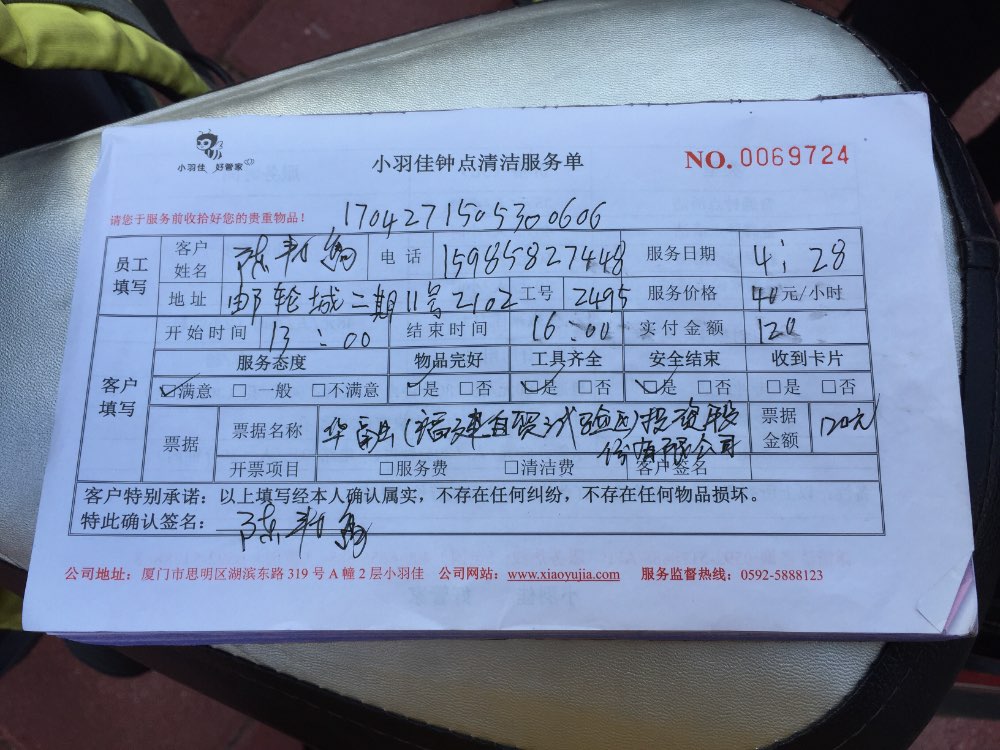 小羽佳 好管家
小羽佳钟点清洁服务单
NO. 0069724
请您于服务前收拾好您的贵重物品!
1704271505300606
员工填写 客户姓名 陈 电话 15985827448 服务日期 4:28
地址 邮轮城二期11号2102 工号 2495 服务价格 40元/小时
客户填写 开始时间 13:00 结束时间 16:00 实付金额 120
服务态度 物品完好 工具齐全 安全结束 收到卡片
☑满意 □一般 □不满意 ☑是 □否 ☑是 □否 ☑是 □否 □是 □否
票据 票据名称 华融(福建自贸试验区)投资股份有限公司 票据金额 120元
开票项目 □服务费 □清洁费 客户签名
客户特别承诺:以上填写经本人确认属实,不存在任何纠纷,不存在任何物品损坏。
特此确认签名: 陈
公司地址:厦门市思明区湖滨东路 319 号 A 幢 2 层小羽佳 公司网站:www.xiaoyujia.com 服务监督热线:0592-5888123